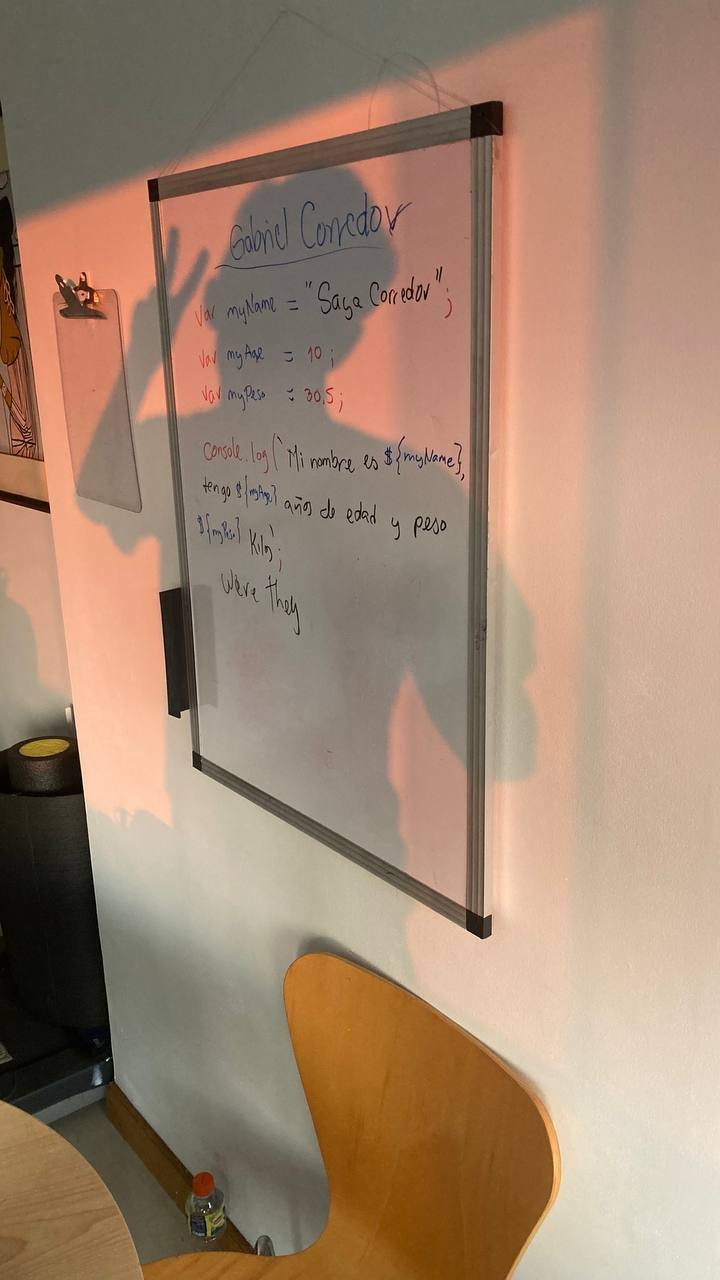 Gabriel Corredor
var myName = "Saga Corredor";
var myAge = 10;
var myPeso = 30.5;
console.log(`Mi nombre es ${myName},
tengo ${myAge} años de edad y peso
${myPeso} Kilos`;
Were they